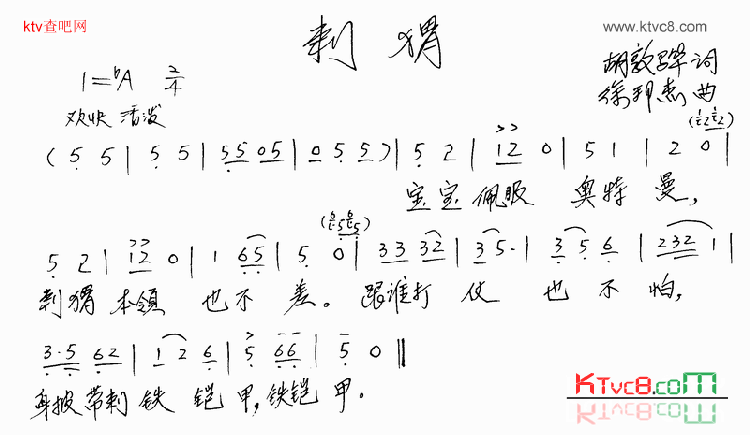 ktv查吧网
www.ktvc8.com
刺猬
1=bA 2/4
胡敦骅词
徐邦杰曲
欢快 活泼
(5 5 | 5 5 | 55 05 | 0 5 5) | 5 2 | 12 0 | 5 1 | 2 0 |
宝宝佩服 奥特曼,
5 2 | 12 0 | 1 65 | 5 0 | 33 32 | 35· | 35 6 | 232 1 |
刺猬本领 也不差。跟谁打仗 也不怕,
3·5 62 | 12 6 | 5 66 | 5 0 ||
身披带刺铁铠甲,铁铠甲。
KTvc8.com